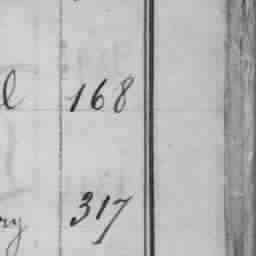 l 168
ry 317